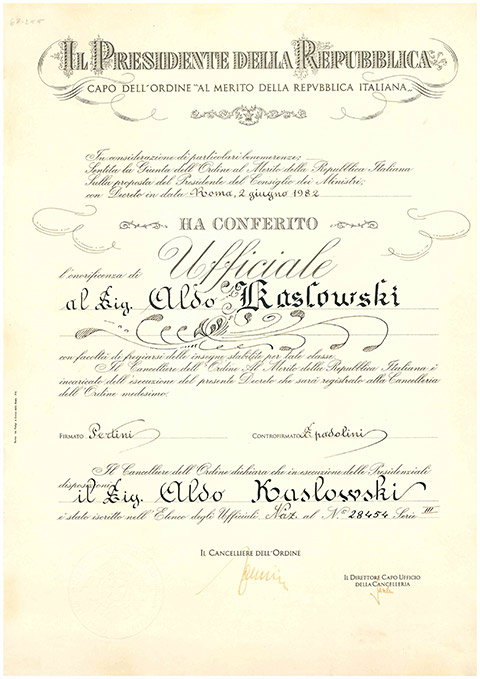 IL PRESIDENTE DELLA REPUBBLICA
CAPO DELL'ORDINE "AL MERITO DELLA REPVBBLICA ITALIANA„
In considerazione di particolari benemerenze;
Sentita la Giunta dell'Ordine al Merito della Repubblica Italiana
Sulla proposta del Presidente del Consiglio dei Ministri;
con Decreto in data Roma, 2 giugno 1982
HA CONFERITO
l'onorificenza di Ufficiale
al Sig. Aldo Kaslowski
con facoltà di fregiarsi delle insegne stabilite per tale classe.
Il Cancelliere dell'Ordine Al Merito della Repubblica Italiana è
incaricato dell'esecuzione del presente Decreto che sarà registrato alla Cancelleria
dell'Ordine medesimo.
FIRMATO Pertini CONTROFIRMATO Spadolini
Il Cancelliere dell'Ordine dichiara che in esecuzione delle Presidenziali
disposizioni il Sig. Aldo Kaslowski
è stato iscritto nell'Elenco degli Ufficiali Naz. al N.° 28454 Serie III
IL CANCELLIERE DELL'ORDINE
IL DIRETTORE CAPO UFFICIO
DELLA CANCELLERIA